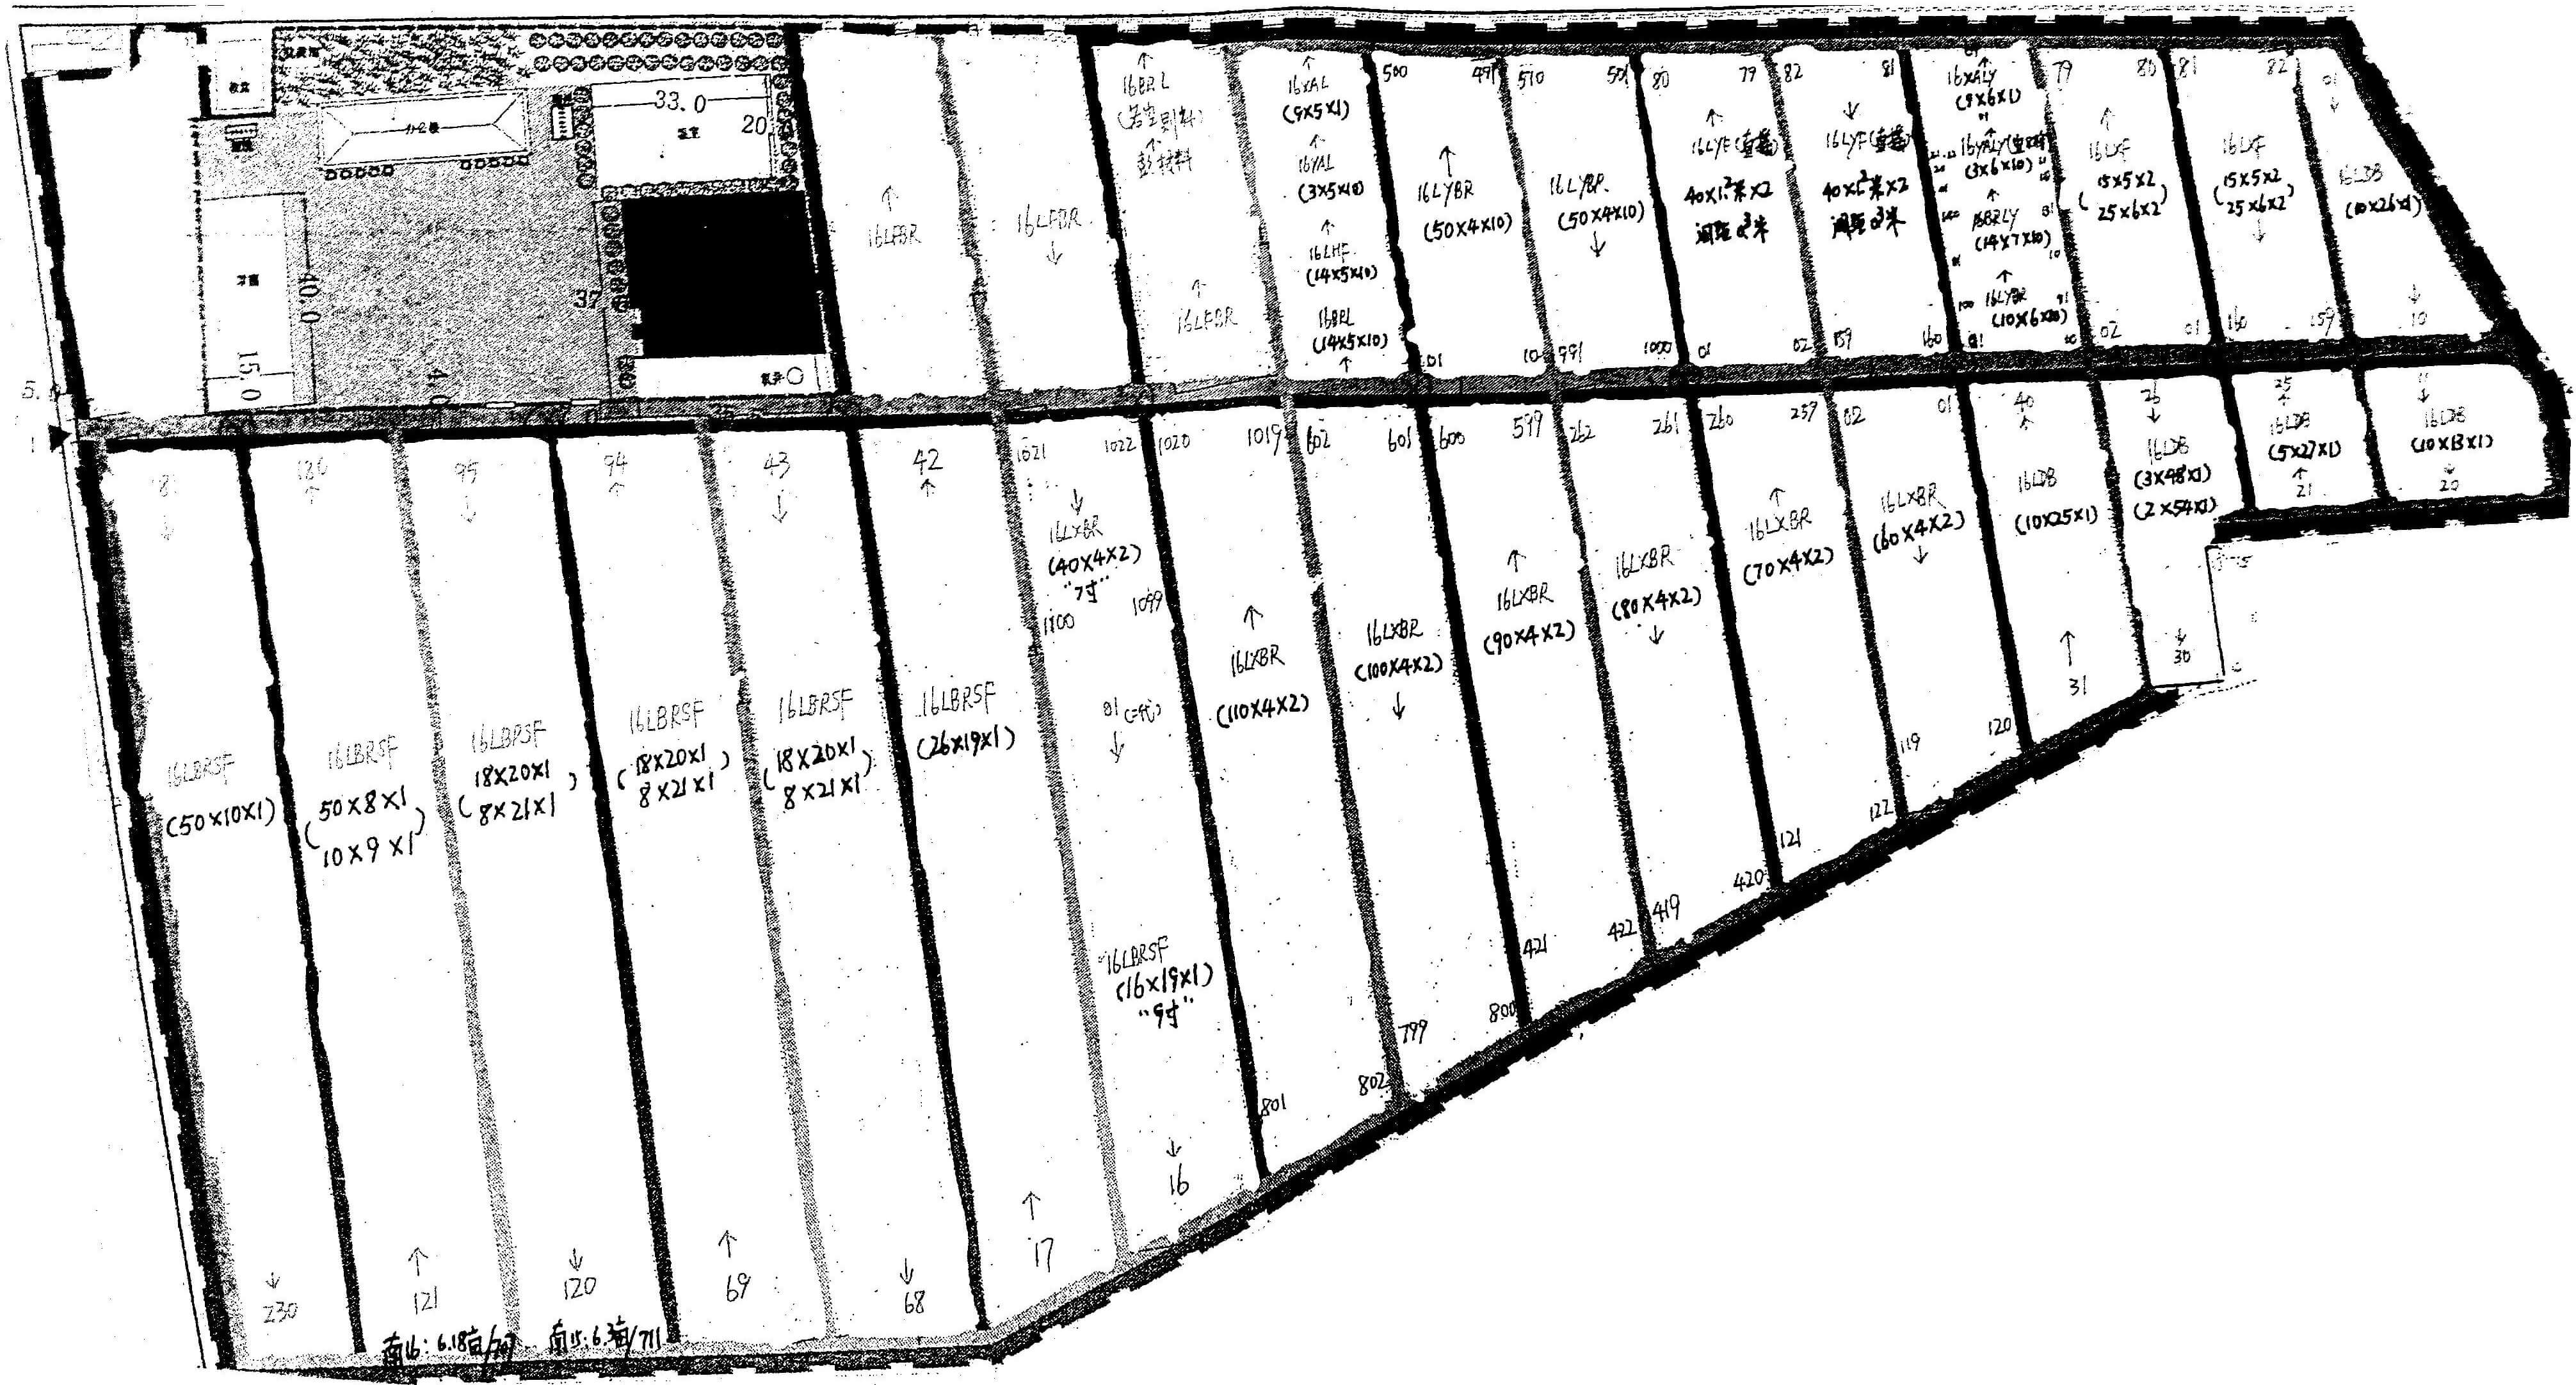 33.0
20
办公楼
37
40.0
15.0
4.0
5.
1
↑
16LFBR
16LFBR
↓
↑
16BRL
↑
↑
16LFBR
↑
16XAL
(9×5×1)
↑
16YAL
(3×5×10)
↑
16LHF
(14×5×10)
16BRL
(14×5×10)
↑
500 491
↑
16LYBR
(50×4×10)
01 10
510 501
16LYBR
(50×4×10)
↓
991 1000
80 79
↑
16LYF(直播)
40×1.2米×2
间距0.3米
01 02
82 81
↓
16LYF(直播)
40×1.2米×2
间距0.3米
159 160
01
16XALY
(9×6×1)
01
↑
(3×6×10)
↑
16BRLY
(14×7×10)
↑
100 16LYBR 91
(10×6×10)
01 10
79 80
↑
16LXF
(15×5×2
25×6×2)
02 01
81 82
16LXF
(15×5×2
25×6×2)
↓
160 159
01
↓
16LDB
(10×26×1)
↓
10
↓
16LBRSF
(50×10×1)
↓
230
↑
16LBRSF
(50×8×1
10×9×1)
↑
121
95
↓
16LBRSF
(18×20×1
8×21×1)
↓
120
94
↑
16LBRSF
(18×20×1
8×21×1)
↑
69
43
↓
16LBRSF
(18×20×1
8×21×1)
↓
68
42
↑
16LBRSF
(26×19×1)
↑
17
1021 1022
↓
16LXBR
(40×4×2)
"7寸"
1100 1099
01
↓
16LBRSF
(16×19×1)
"9寸"
↓
16
1020 1019
↑
16LXBR
(110×4×2)
801 802
602 601
16LXBR
(100×4×2)
↓
799 800
600 599
↑
16LXBR
(90×4×2)
421 422
262 261
16LXBR
(80×4×2)
↓
419 420
260 259
↑
16LXBR
(70×4×2)
121 122
02 01
16LXBR
(60×4×2)
↓
119 120
40
↑
16LDB
(10×25×1)
↑
31
26
↓
16LDB
(3×48×1)
(2×54×1)
↓
30
25
↑
16LDB
(5×27×1)
↑
21
11
↓
16LDB
(10×13×1)
↓
20
南16:6.18亩/707 南15:6.2亩/711